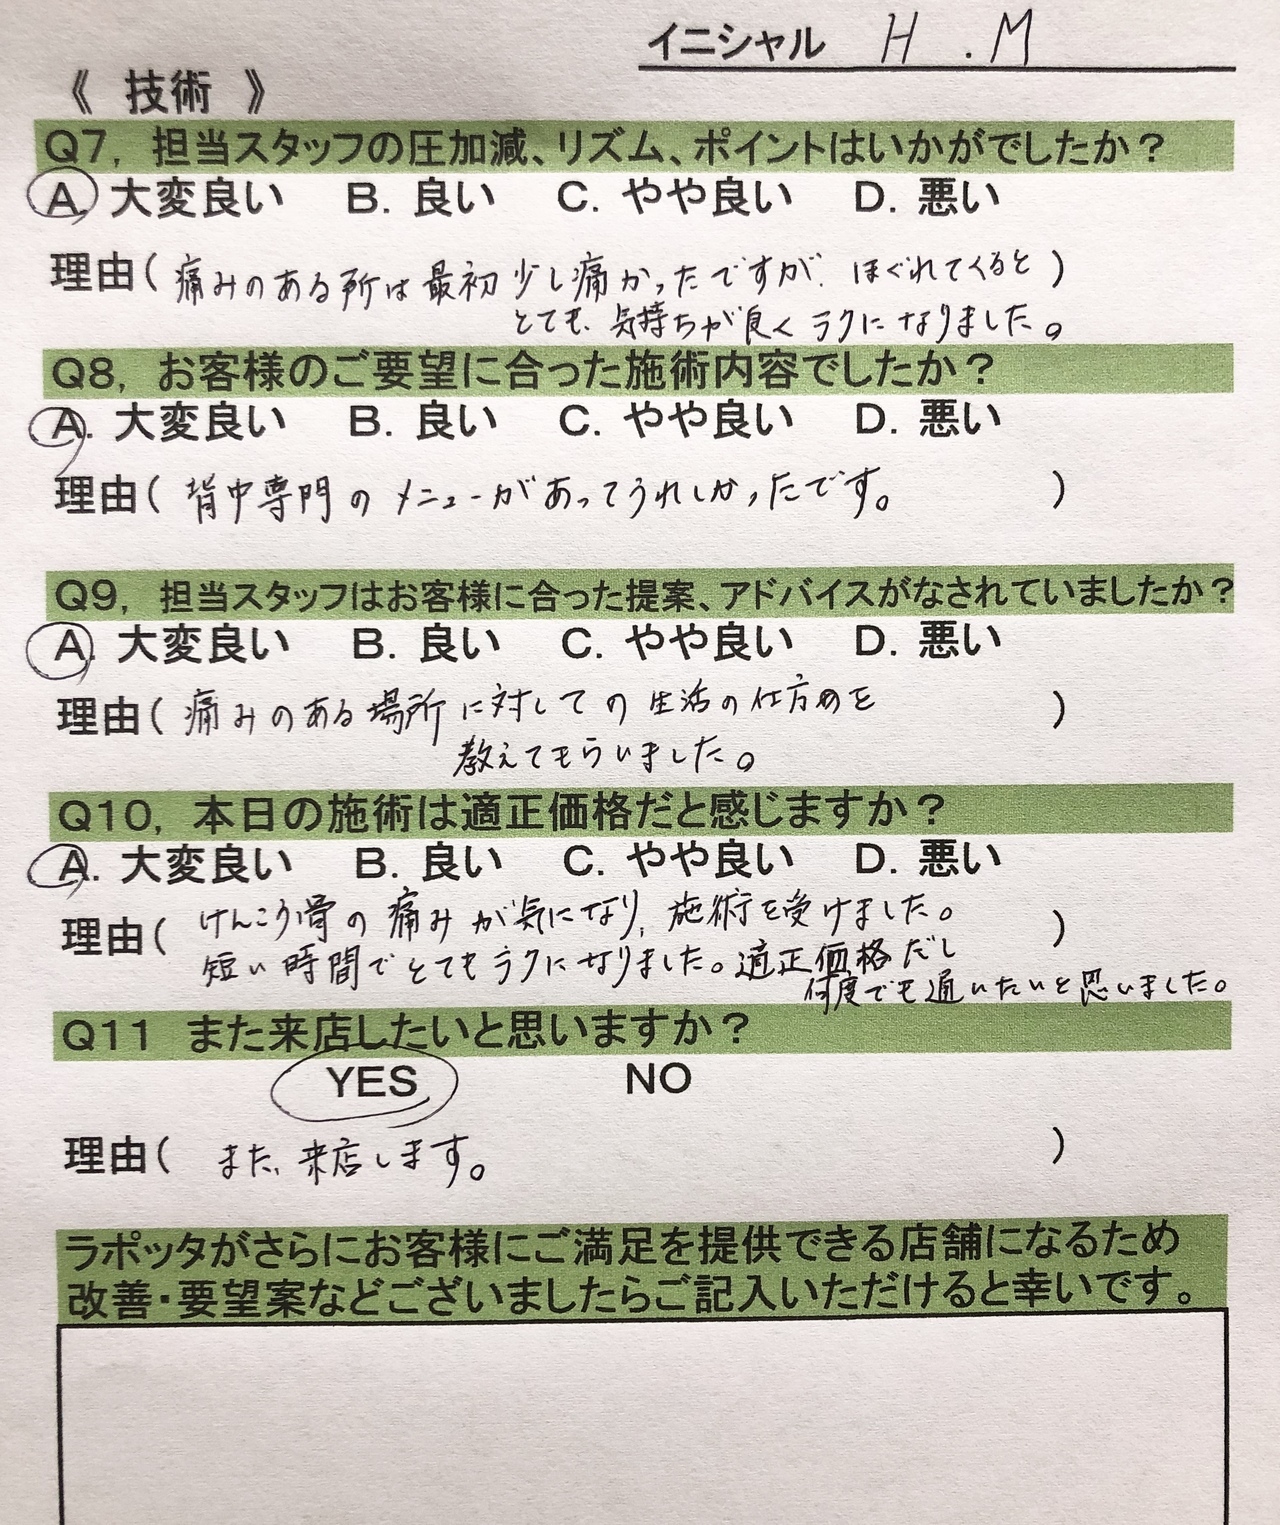 イニシャル H . M
《 技術 》
Q7, 担当スタッフの圧加減、リズム、ポイントはいかがでしたか？
A. 大変良い B. 良い C. やや良い D. 悪い
理由( 痛みのある所は最初少し痛かったですが、ほぐれてくると )
とても、気持ちが良くラクになりました。
Q8, お客様のご要望に合った施術内容でしたか？
A. 大変良い B. 良い C. やや良い D. 悪い
理由( 背中専門のメニューがあってうれしかったです。 )
Q9, 担当スタッフはお客様に合った提案、アドバイスがなされていましたか？
A. 大変良い B. 良い C. やや良い D. 悪い
理由( 痛みのある場所に対しての生活の仕方を )
教えてもらいました。
Q10, 本日の施術は適正価格だと感じますか？
A. 大変良い B. 良い C. やや良い D. 悪い
理由( けんこう骨の痛みが気になり、施術を受けました。 )
短い時間でとてもラクになりました。適正価格だし
何度でも通いたいと思いました。
Q11 また来店したいと思いますか？
YES NO
理由( また、来店します。 )
ラポッタがさらにお客様にご満足を提供できる店舗になるため
改善・要望案などございましたらご記入いただけると幸いです。